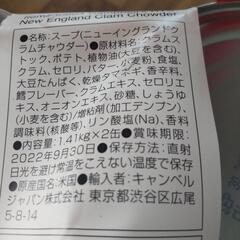 New England Clam Chowder
●名称:スープ(ニューイングランドク
ラムチャウダー)●原材料名:クラムス
トック、ポテト、植物油(大豆を含む)、
クラム、セロリ、バター、小麦粉、食塩、
大豆たんぱく、乾燥タマネギ、香辛料、
クラムエキス、クリームパウダー、セロリエキス、
鱈フレーバー、クラムエキス、セロリエ
キス、オニオンエキス、砂糖、しょうゆ
(小麦を含む)/増粘剤(加工デンプン)、
調味料(核酸等)、リン酸塩(Na)、香料
●内容量:1.41kg×2缶●賞味期限:
2022年9月30日●保存方法:直射
日光を避け常温をこえない温度で保存
●原産国名:米国●輸入者:キャンベル
ジャパン株式会社 東京都渋谷区広尾
5-8-14